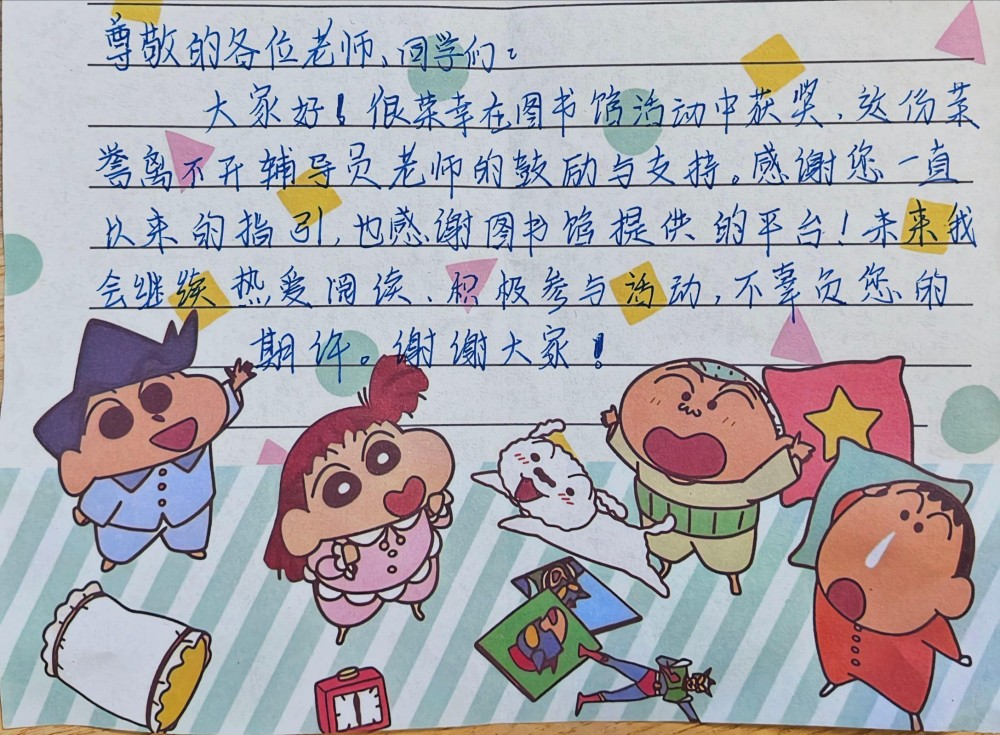 尊敬的各位老师、同学们：
大家好！很荣幸在图书馆活动中获奖，这份荣
誉离不开辅导员老师的鼓励与支持。感谢您一直
以来的指引，也感谢图书馆提供的平台！未来我
会继续热爱阅读、积极参与活动，不辜负您的
期许。谢谢大家！